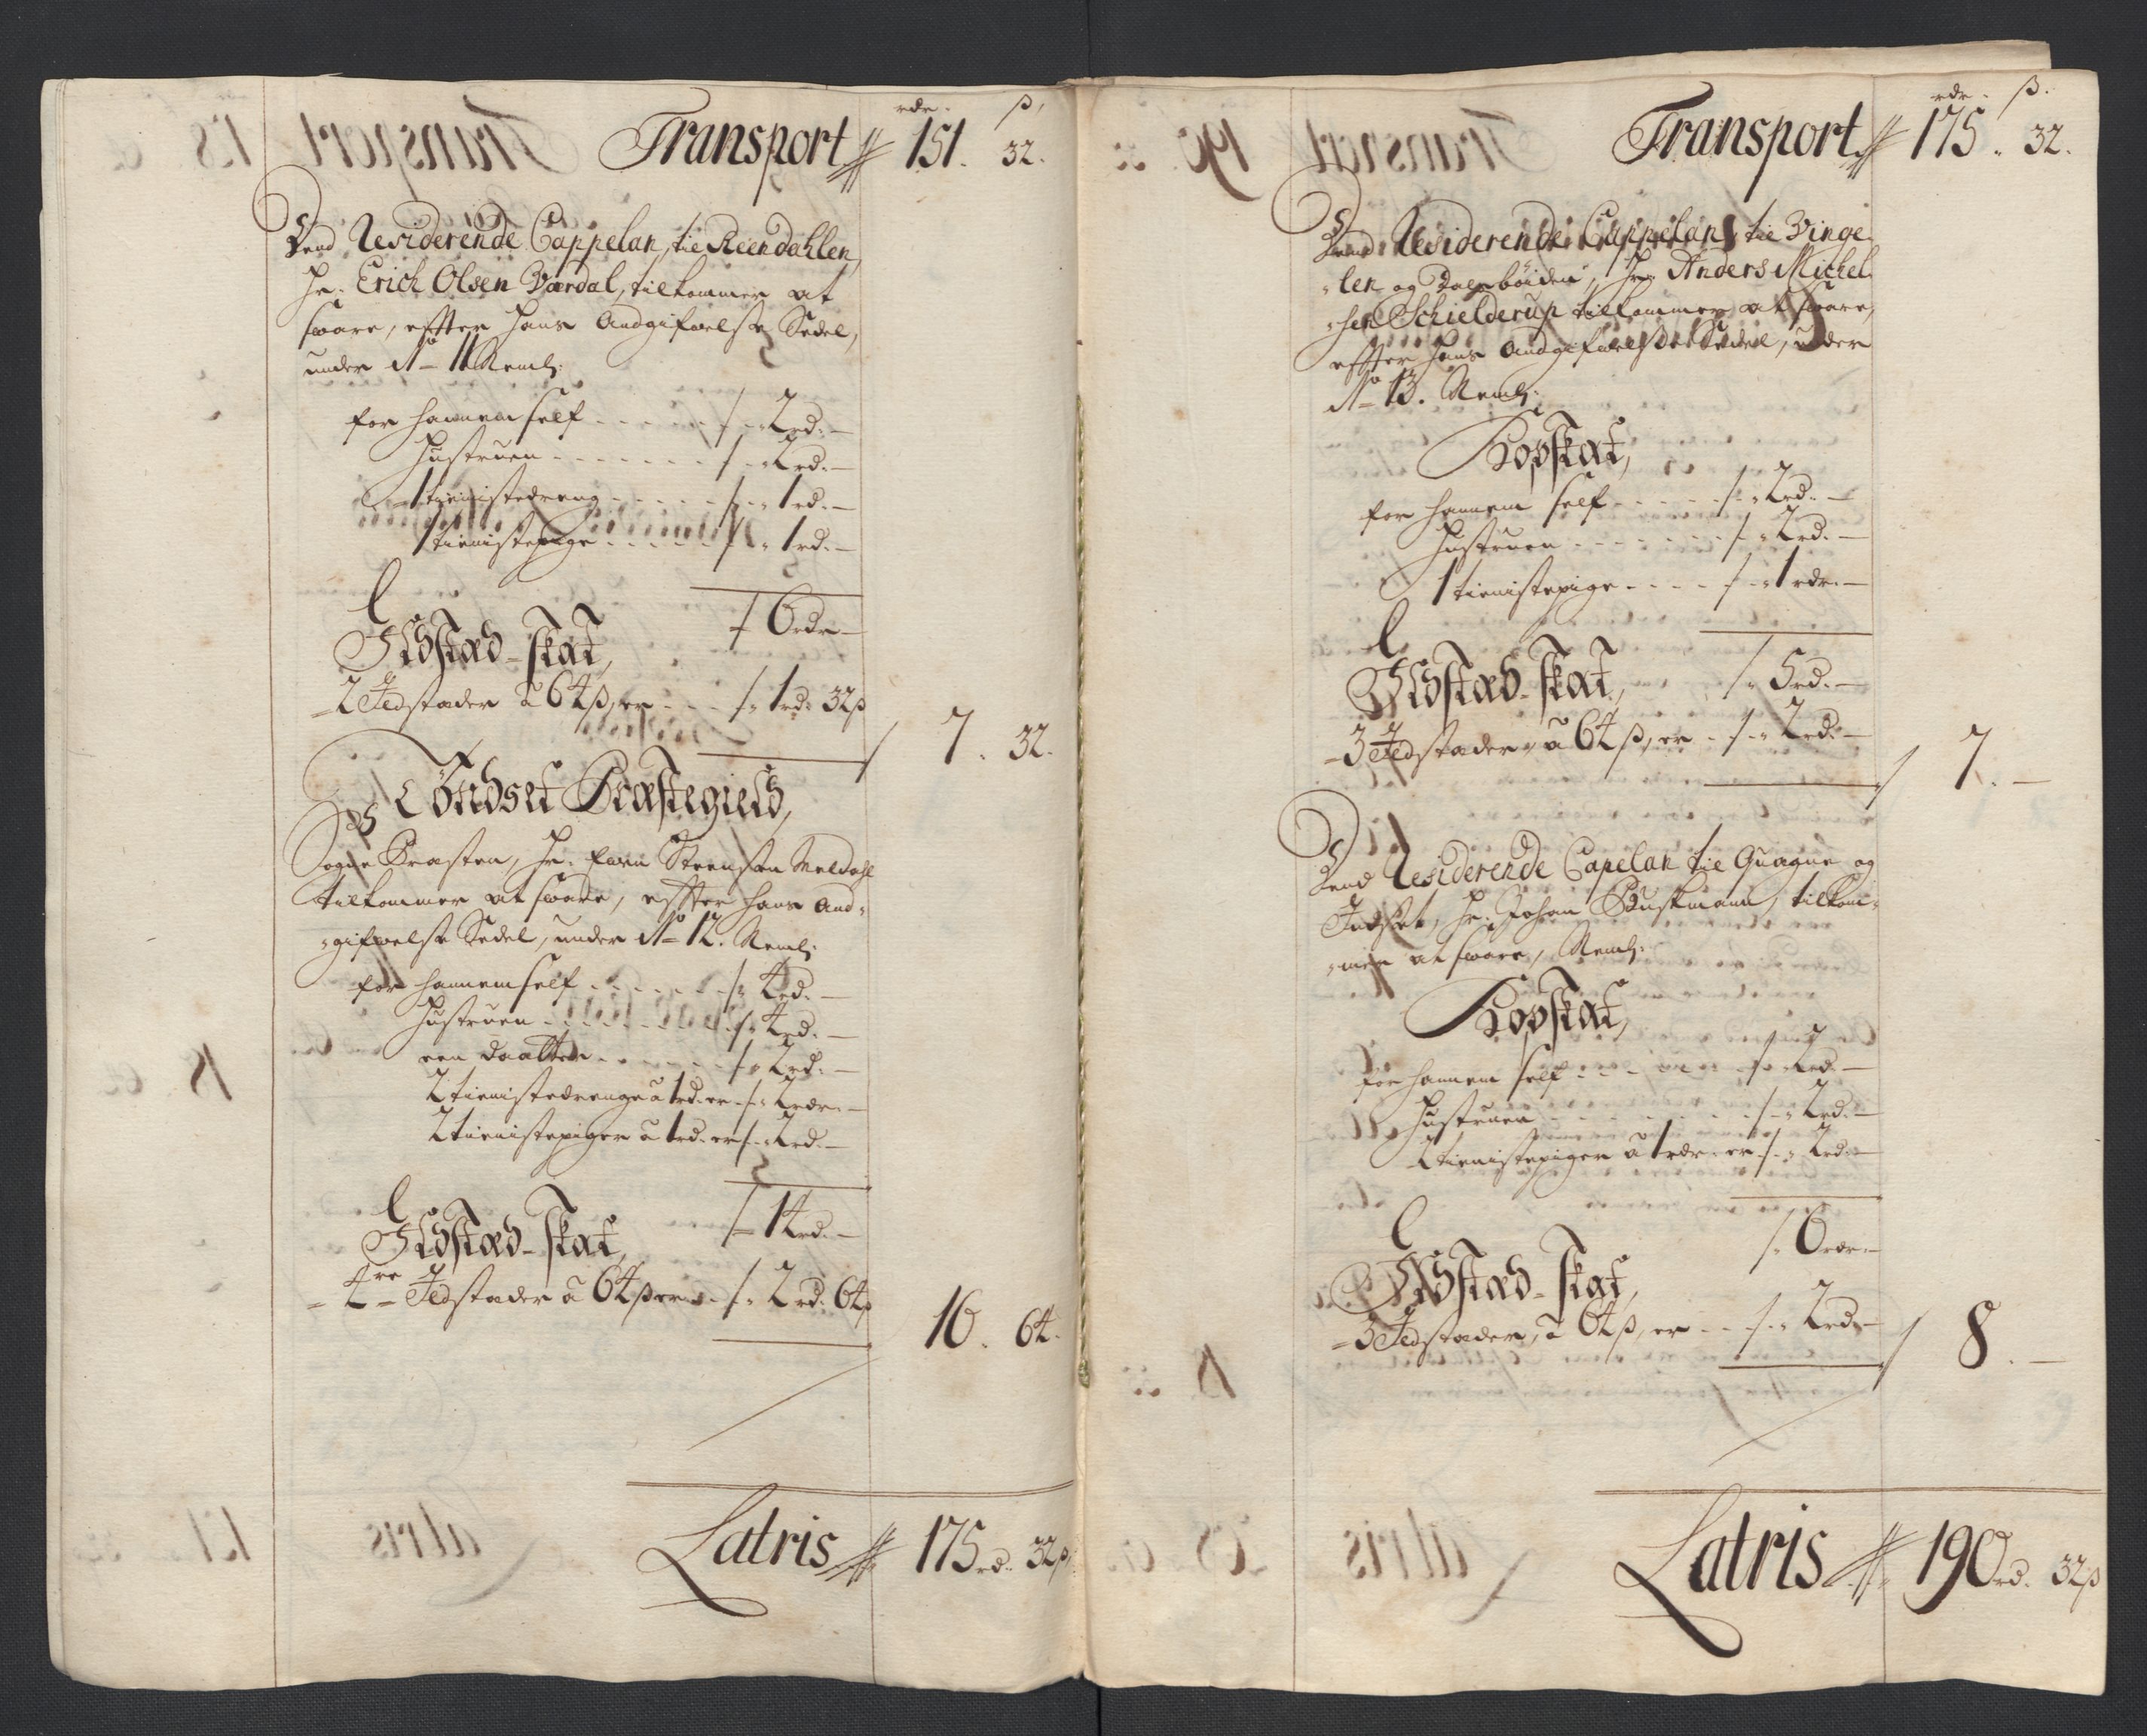 rdr. ß.
Transport 151. 32.
Dend Residerende Cappelan, til Reendahlen,
Hr. Erich Olsen Værdal, tilkommer at
svare, effter hans Andgifvelse Sedel,
under No 11 Neml:
for hannem self - - - 2 rd: -
Hustruen - - - 2 rd: -
1 tienistedreng - - - 1 rd: -
1 tienistepige - - - 1 rd: -
6 rdr -
Ildstæd-skat,
2 Ildstæder à 64 ß, er - - - 1 rd: 32 ß
7. 32.
Töndset Præstegield,
Sogne Præsten, Hr. Steensen Meldahl
tilkommer at svare, effter hans And-
gifvelse Sedel, under No 12. Neml:
for hannem self - - - 4 rd: -
Hustruen - - - 4 rd: -
een Daatter - - - 2 rd: -
2 tienistedrenge à 1 rd: er - 2 rdr: -
2 tienistepiger à 1 rd: er - 2 rd: -
14 rd: -
Ildstæd-skat,
4re Ildstæder à 64 ß er - 2 rd: 64 ß
16. 64.
Latris 175 rd: 32 ß
rdr. ß.
Transport 175. 32.
Dend Residerende Cappelan, til Vinge-
len og Dalsbøiden, Hr. Anders Michel-
sen Schielderup tilkommer at svare,
effter hans Andgifvelse Sedel, under
No 13. Neml:
Kopskat,
for hannem self - - - 2 rd: -
Hustruen - - - 2 rd: -
1 tienistepige - - - 1 rdr: -
5 rd: -
Ildstæd-skat,
3 Ildstæder, à 64 ß, er - 2 rd: -
7. -
Dend Residerende Capelan til Quagne og
Indset, Hr. Johan Buskmann, tilkom-
mer at svare, Neml:
Kopskat,
for hannem self - - - 2 rd: -
Hustruen - - - 2 rd: -
2 tienistepiger à 1 rdr: er - 2 rd: -
6 rdr: -
Ildstæd-skat,
3 Ildstæder, à 64 ß, er - - 2 rd: -
8. -
Latris 190 rd. 32 ß